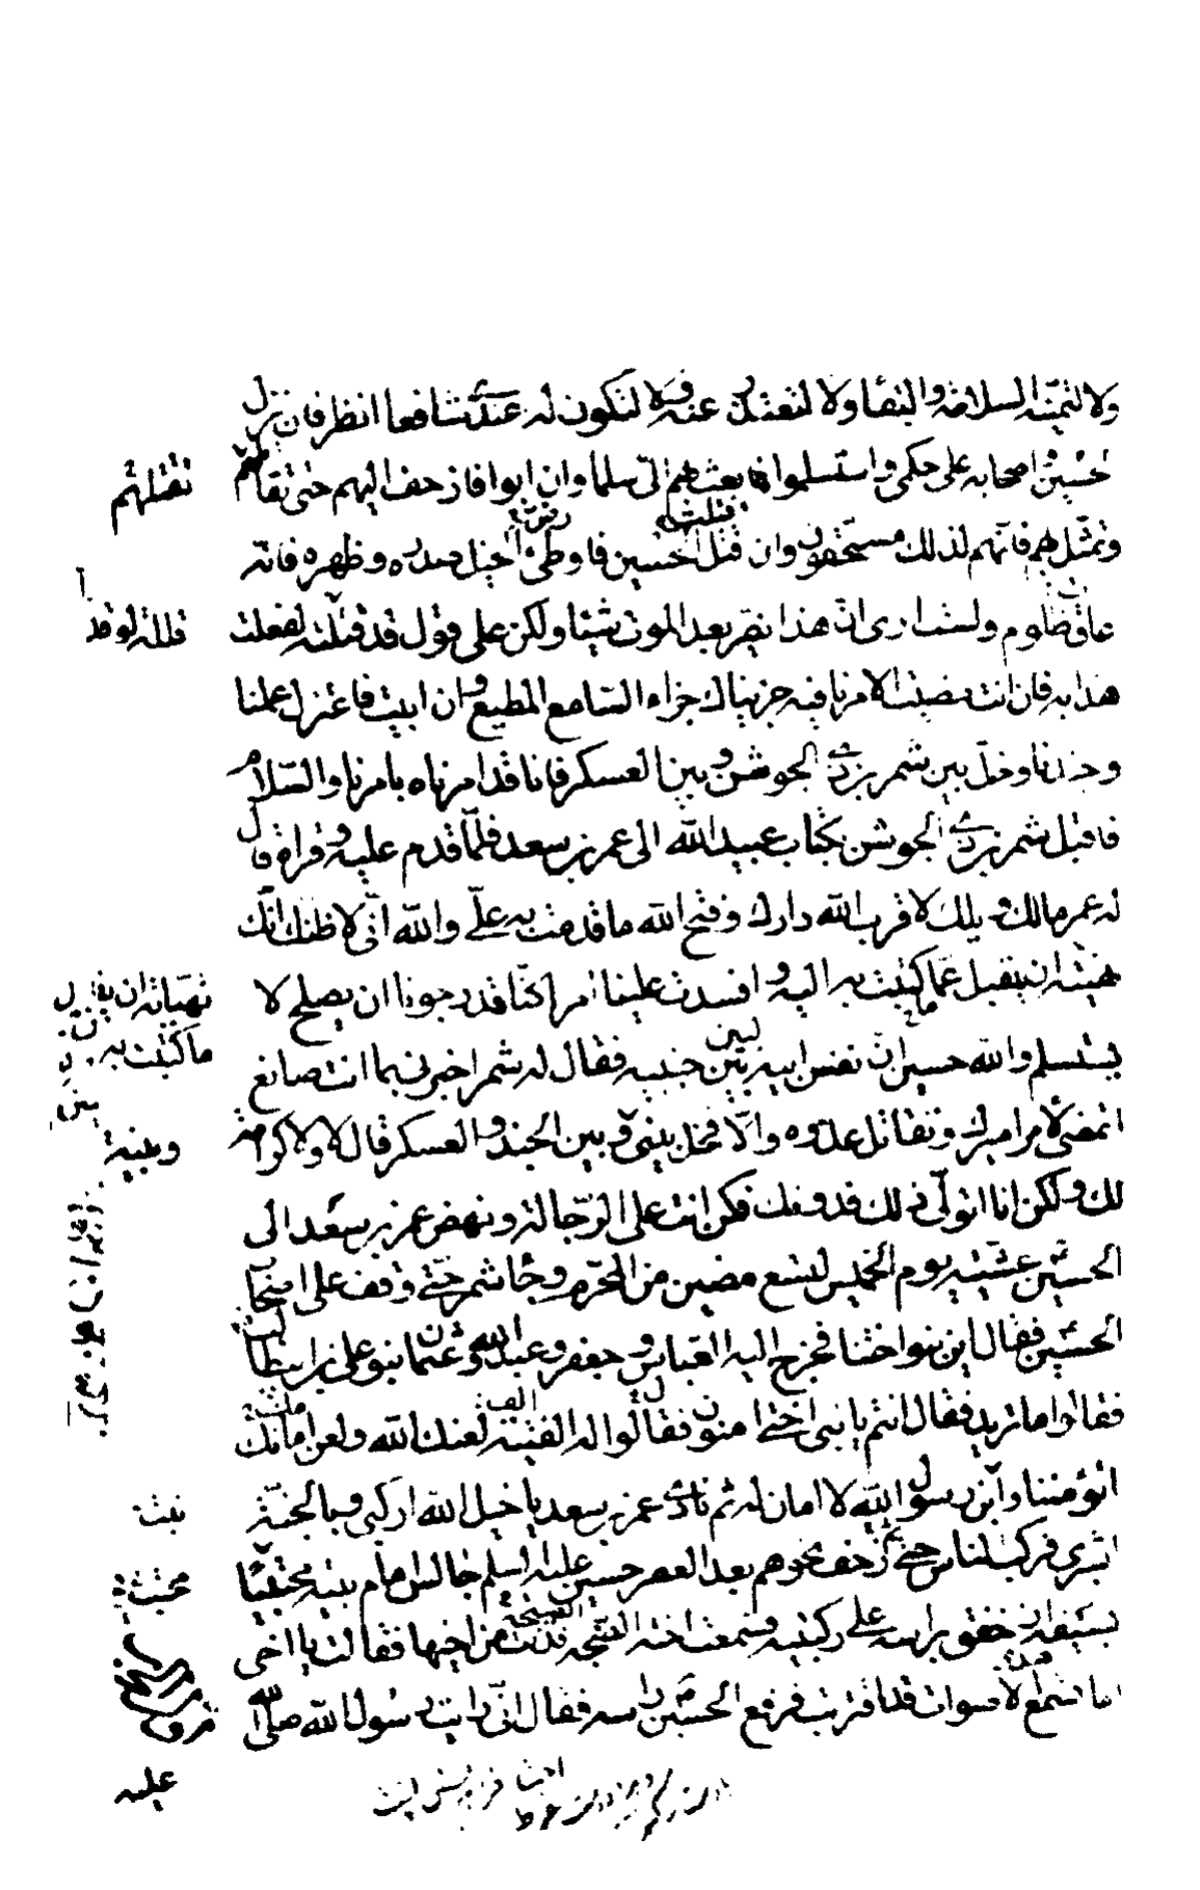 ولا لتمنيه السلامة والبقاء ولا لتعتذر عنه ولا لتكون له عندى شافعا انظر فان نزل
حسين واصحابه على حكمى واستسلموا فابعث بهم الىّ سلما وان ابوا فازحف اليهم حتى تقتلهم
وتمثّل بهم فانهم لذلك مستحقون وان قتل الحسين فاوطئ الخيل صدره وظهره فانه
عاق ظلوم ولست ارى ان هذا يضر بعد الموت شيئا ولكن على قول قد قلته لو قتلته لفعلت
هذا به فان انت مضيت لامرنا فيه جزيناك جزاء السامع المطيع وان ابيت فاعتزل عملنا
وجندنا وخل بين شمر بن ذى الجوشن وبين العسكر فانا قد امرناه بامرنا والسّلام
فاقبل شمر بن ذى الجوشن بكتاب عبيد الله الى عمر بن سعد فلمّا قدم عليه وقراه قال
له عمر مالك ويلك لا قرب الله دارك وقبح الله ما قدمت به علىّ والله انّى لاظنك انّك
نهيته ان يقبل عما كتبت به اليه وافسدت علينا امرا كنّا قد رجونا ان يصلح لا
يستسلم والله حسين ان نفس ابيه لبين جنبيه فقال له شمر اخبرنى ما انت صانع
اتمضى لامر اميرك وتقاتل عدوه والّا فخل بينى وبين الجند والعسكر قال لا ولا كرامة
لك ولكن انا اتولّى ذلك فدونك فكن انت على الرّجالة ونهض عمر بن سعد الى
الحسين عشية يوم الخميس لتسع مضين من المحرّم وجا شمر حتى وقف على اصحاب
الحسين فقال اين بنو اختنا فخرج اليه العباس وجعفر وعبد الله وعثمان بنو على بن ابيطالب
فقالوا ما تريد فقال انتم يا بنى اختى امنون فقالوا له الفتية لعنك الله ولعن امانك
اتؤمننا وابن رسول الله لا امان له ثم نادى عمر بن سعد يا خيل الله اركبى وبالجنّة
ابشرى فركب الناس حتى زحف نحوهم بعد العصر وحسين عليه السلم جالس امام بيته محتبيا
بسيفه اذ خفق براسه على ركبتيه وسمعت اخته الصيحة فدنت من اخيها فقالت يا اخى
اما تسمع الاصوات قد اقتربت فرفع الحسين راسه فقال انّى رايت رسول الله صلّى الله
تقتلهم
قلته لو قد
ما كتبت به
عليه